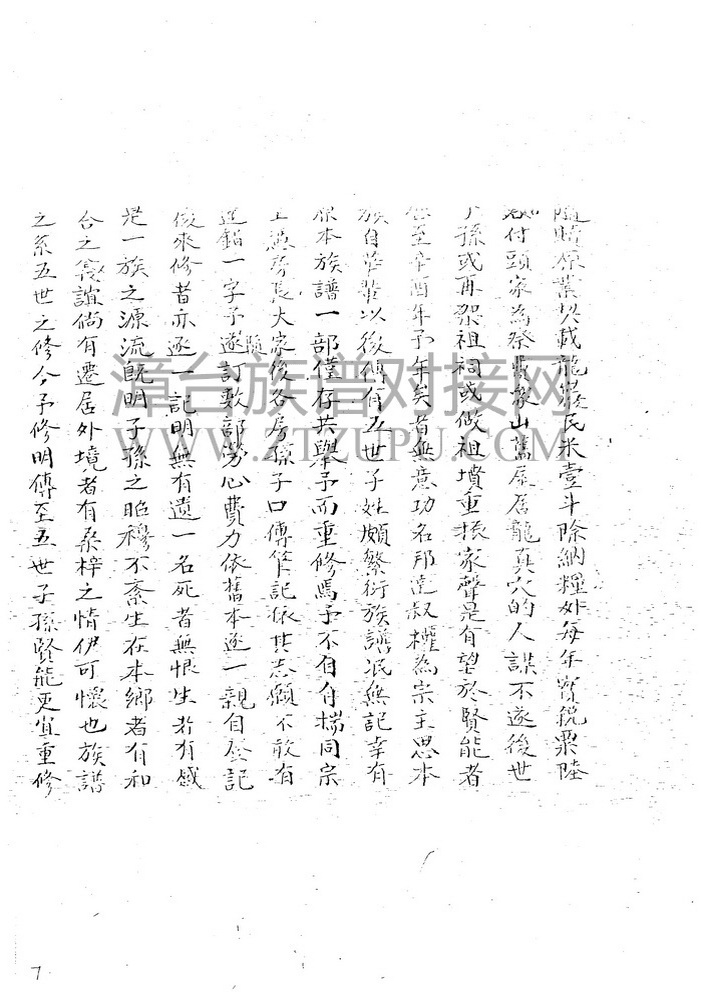 隨賠原業契載龍巖民米壹斗除納糧外每年實稅粟陸
付頭家為祭費象山舊屋居龍真穴的人謀不遂後世
孫或再祭祖祠或做祖墳重振家聲是有望於賢能者
至辛酉年予年矣者無意功名邦達叔權為宗主思本
族自華輩以後傳有五世子姓頗繁衍族譜泯無記幸有
本族譜一部僅存共舉予而重修焉予不自揣同宗
長大家後各房孫子口傳筆記依其志願不敢有
錯一字予遂隨訂數部勞心費力依舊本逐一親自登記
後來修者亦逐一記明無有遺一名死者無恨生者有感
是一族之源流既明子孫之昭穆不紊生在本鄉者有和
合之誼倘有遷居外境者有桑梓之情伊可懷也族譜
之系五世之修今予修明傳至五世子孫賢能更宜重修
漳台族谱对接网
WWW.ZTZUPU.COM
7